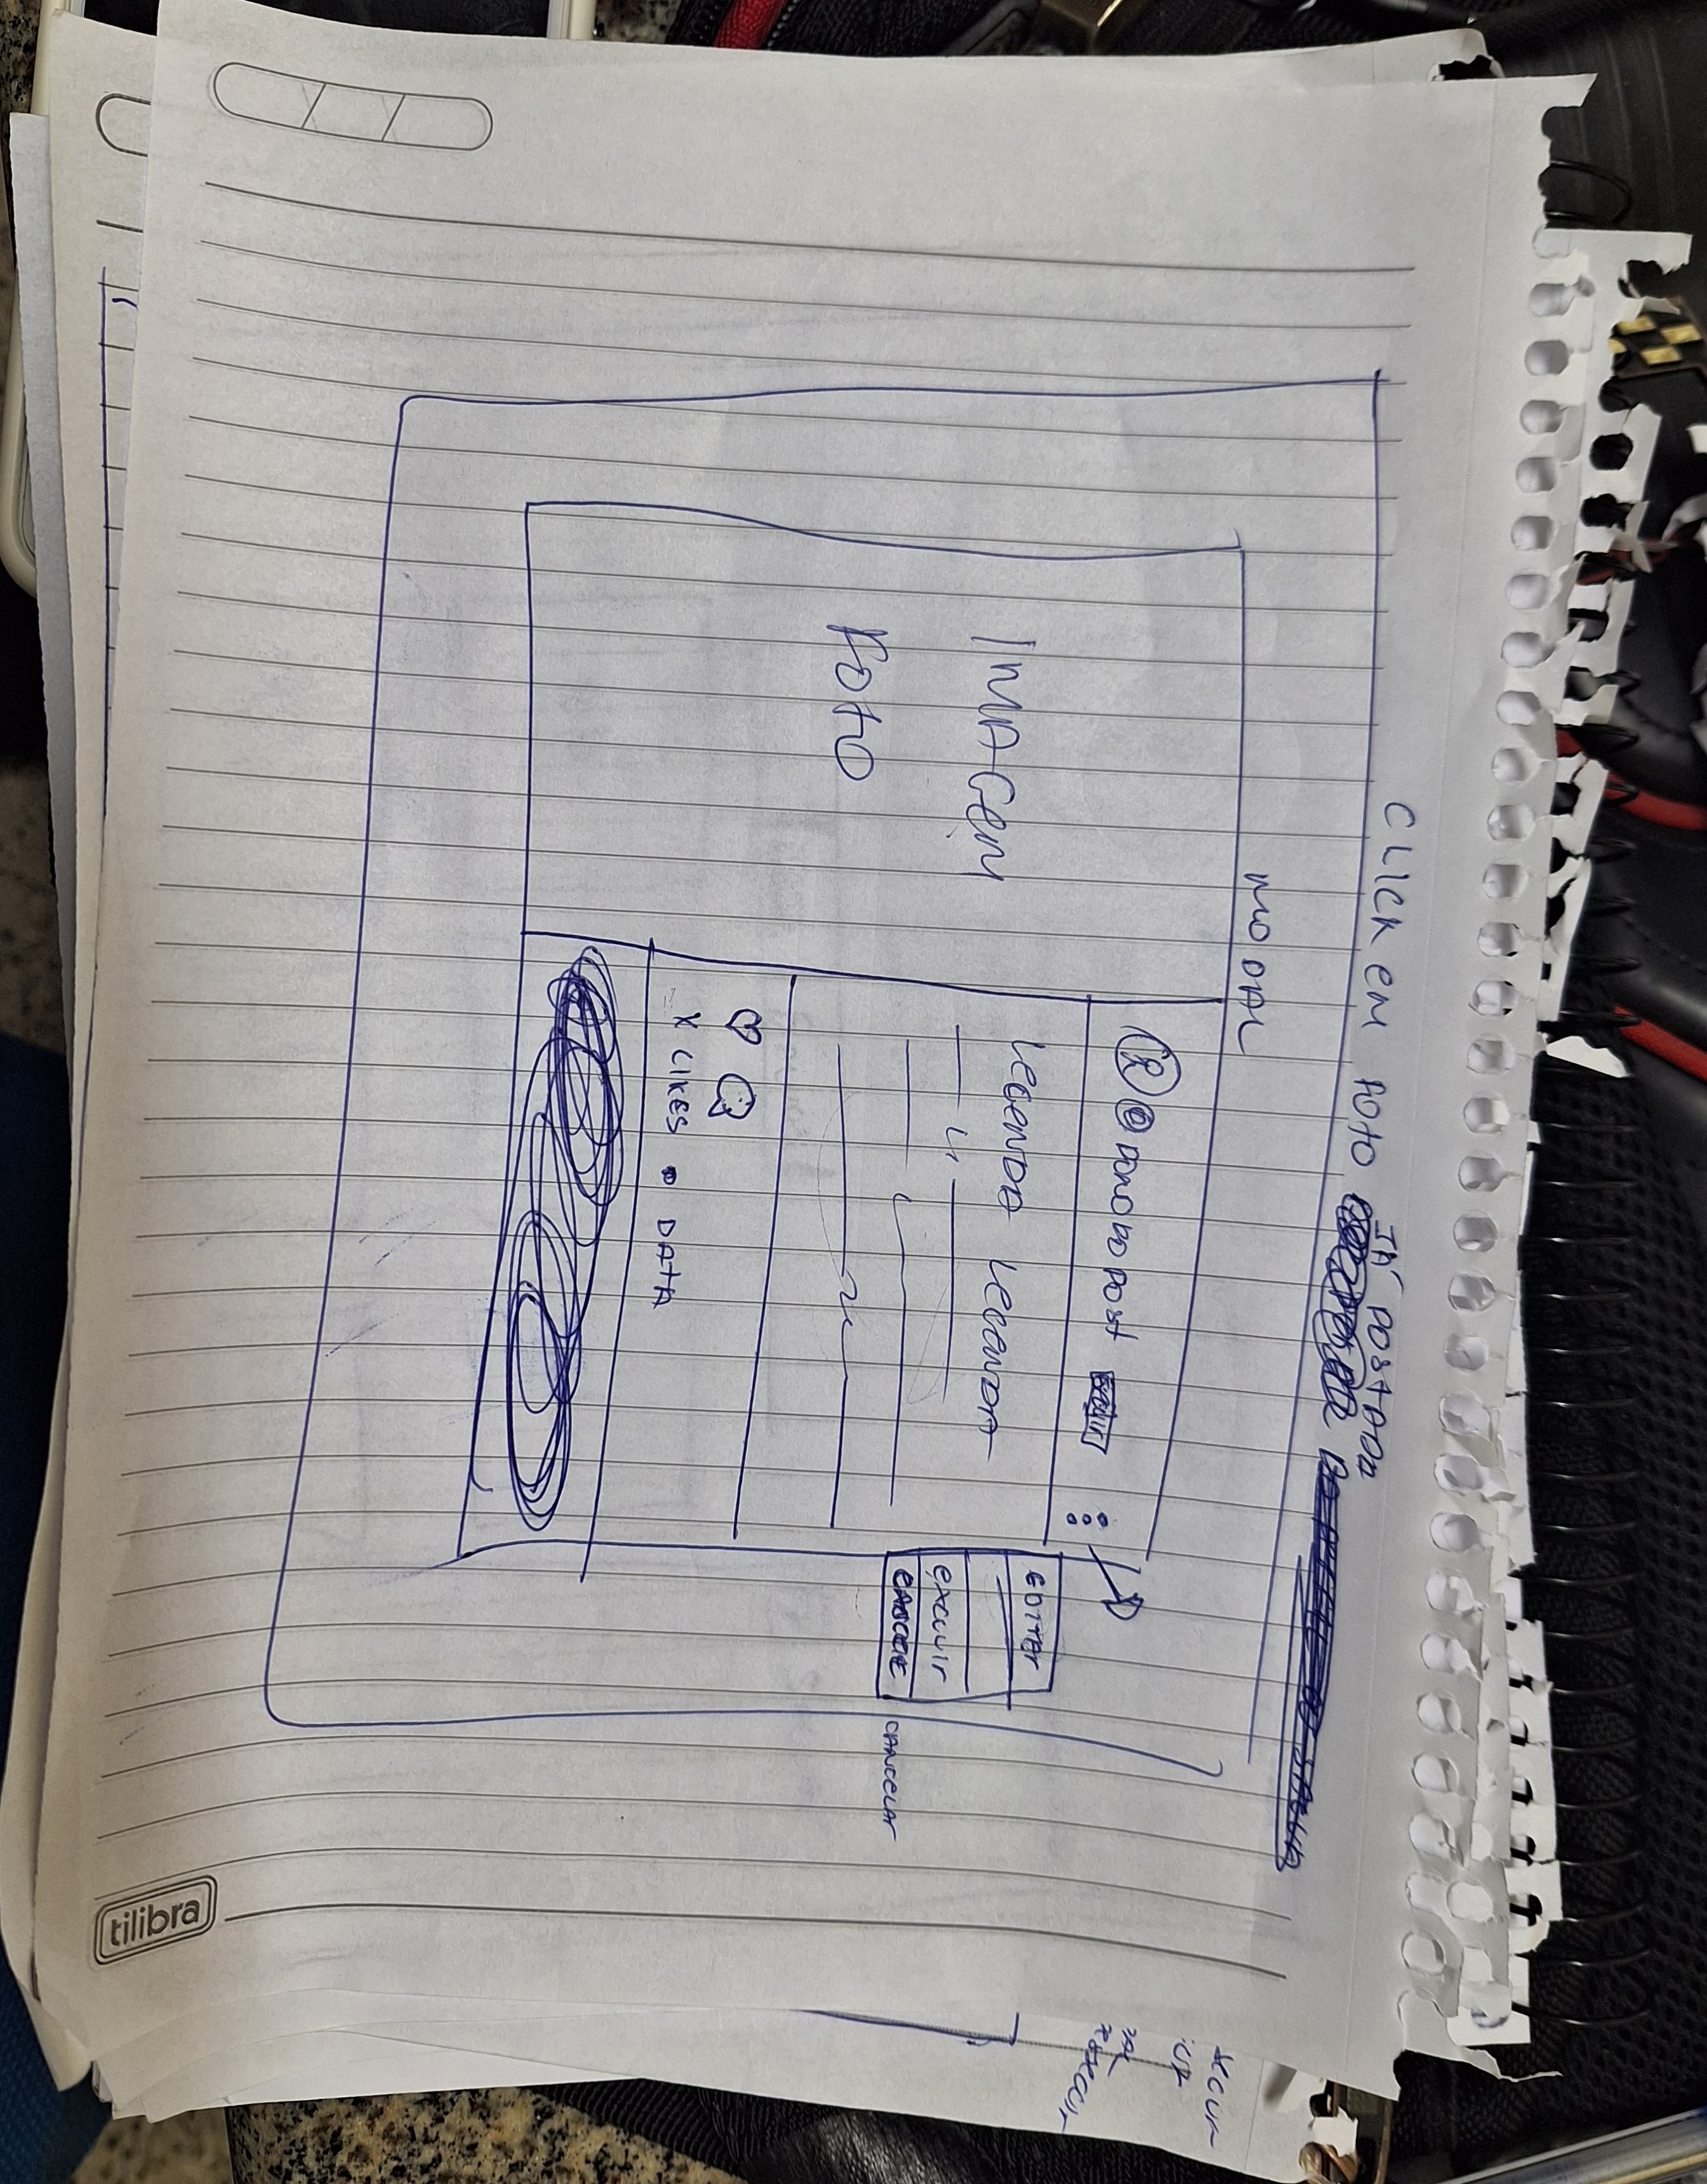 CLICK EM FOTO JÁ POSTADA
MODAL
IMAGEM
FOTO
@DONO DO POST
LEGENDA LEGENDA
X LIKES • DATA
EDITAR
EXCLUIR
CANCELAR
tilibra